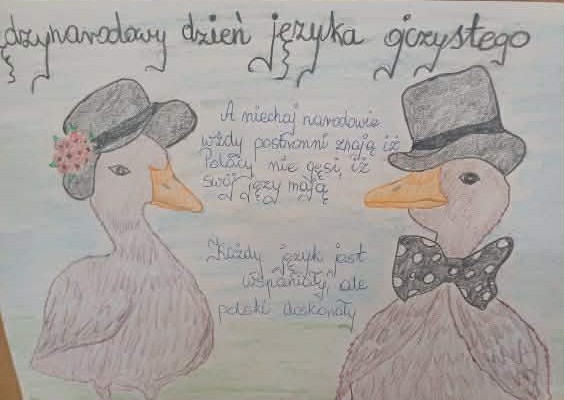 dzynarodowy dzień języka ojczystego
A niechaj narodowie
wżdy postronni znają iż
Polacy nie gęsi, iż
swój języ mają
Każdy język jest
wspaniały, ale
polski doskonały